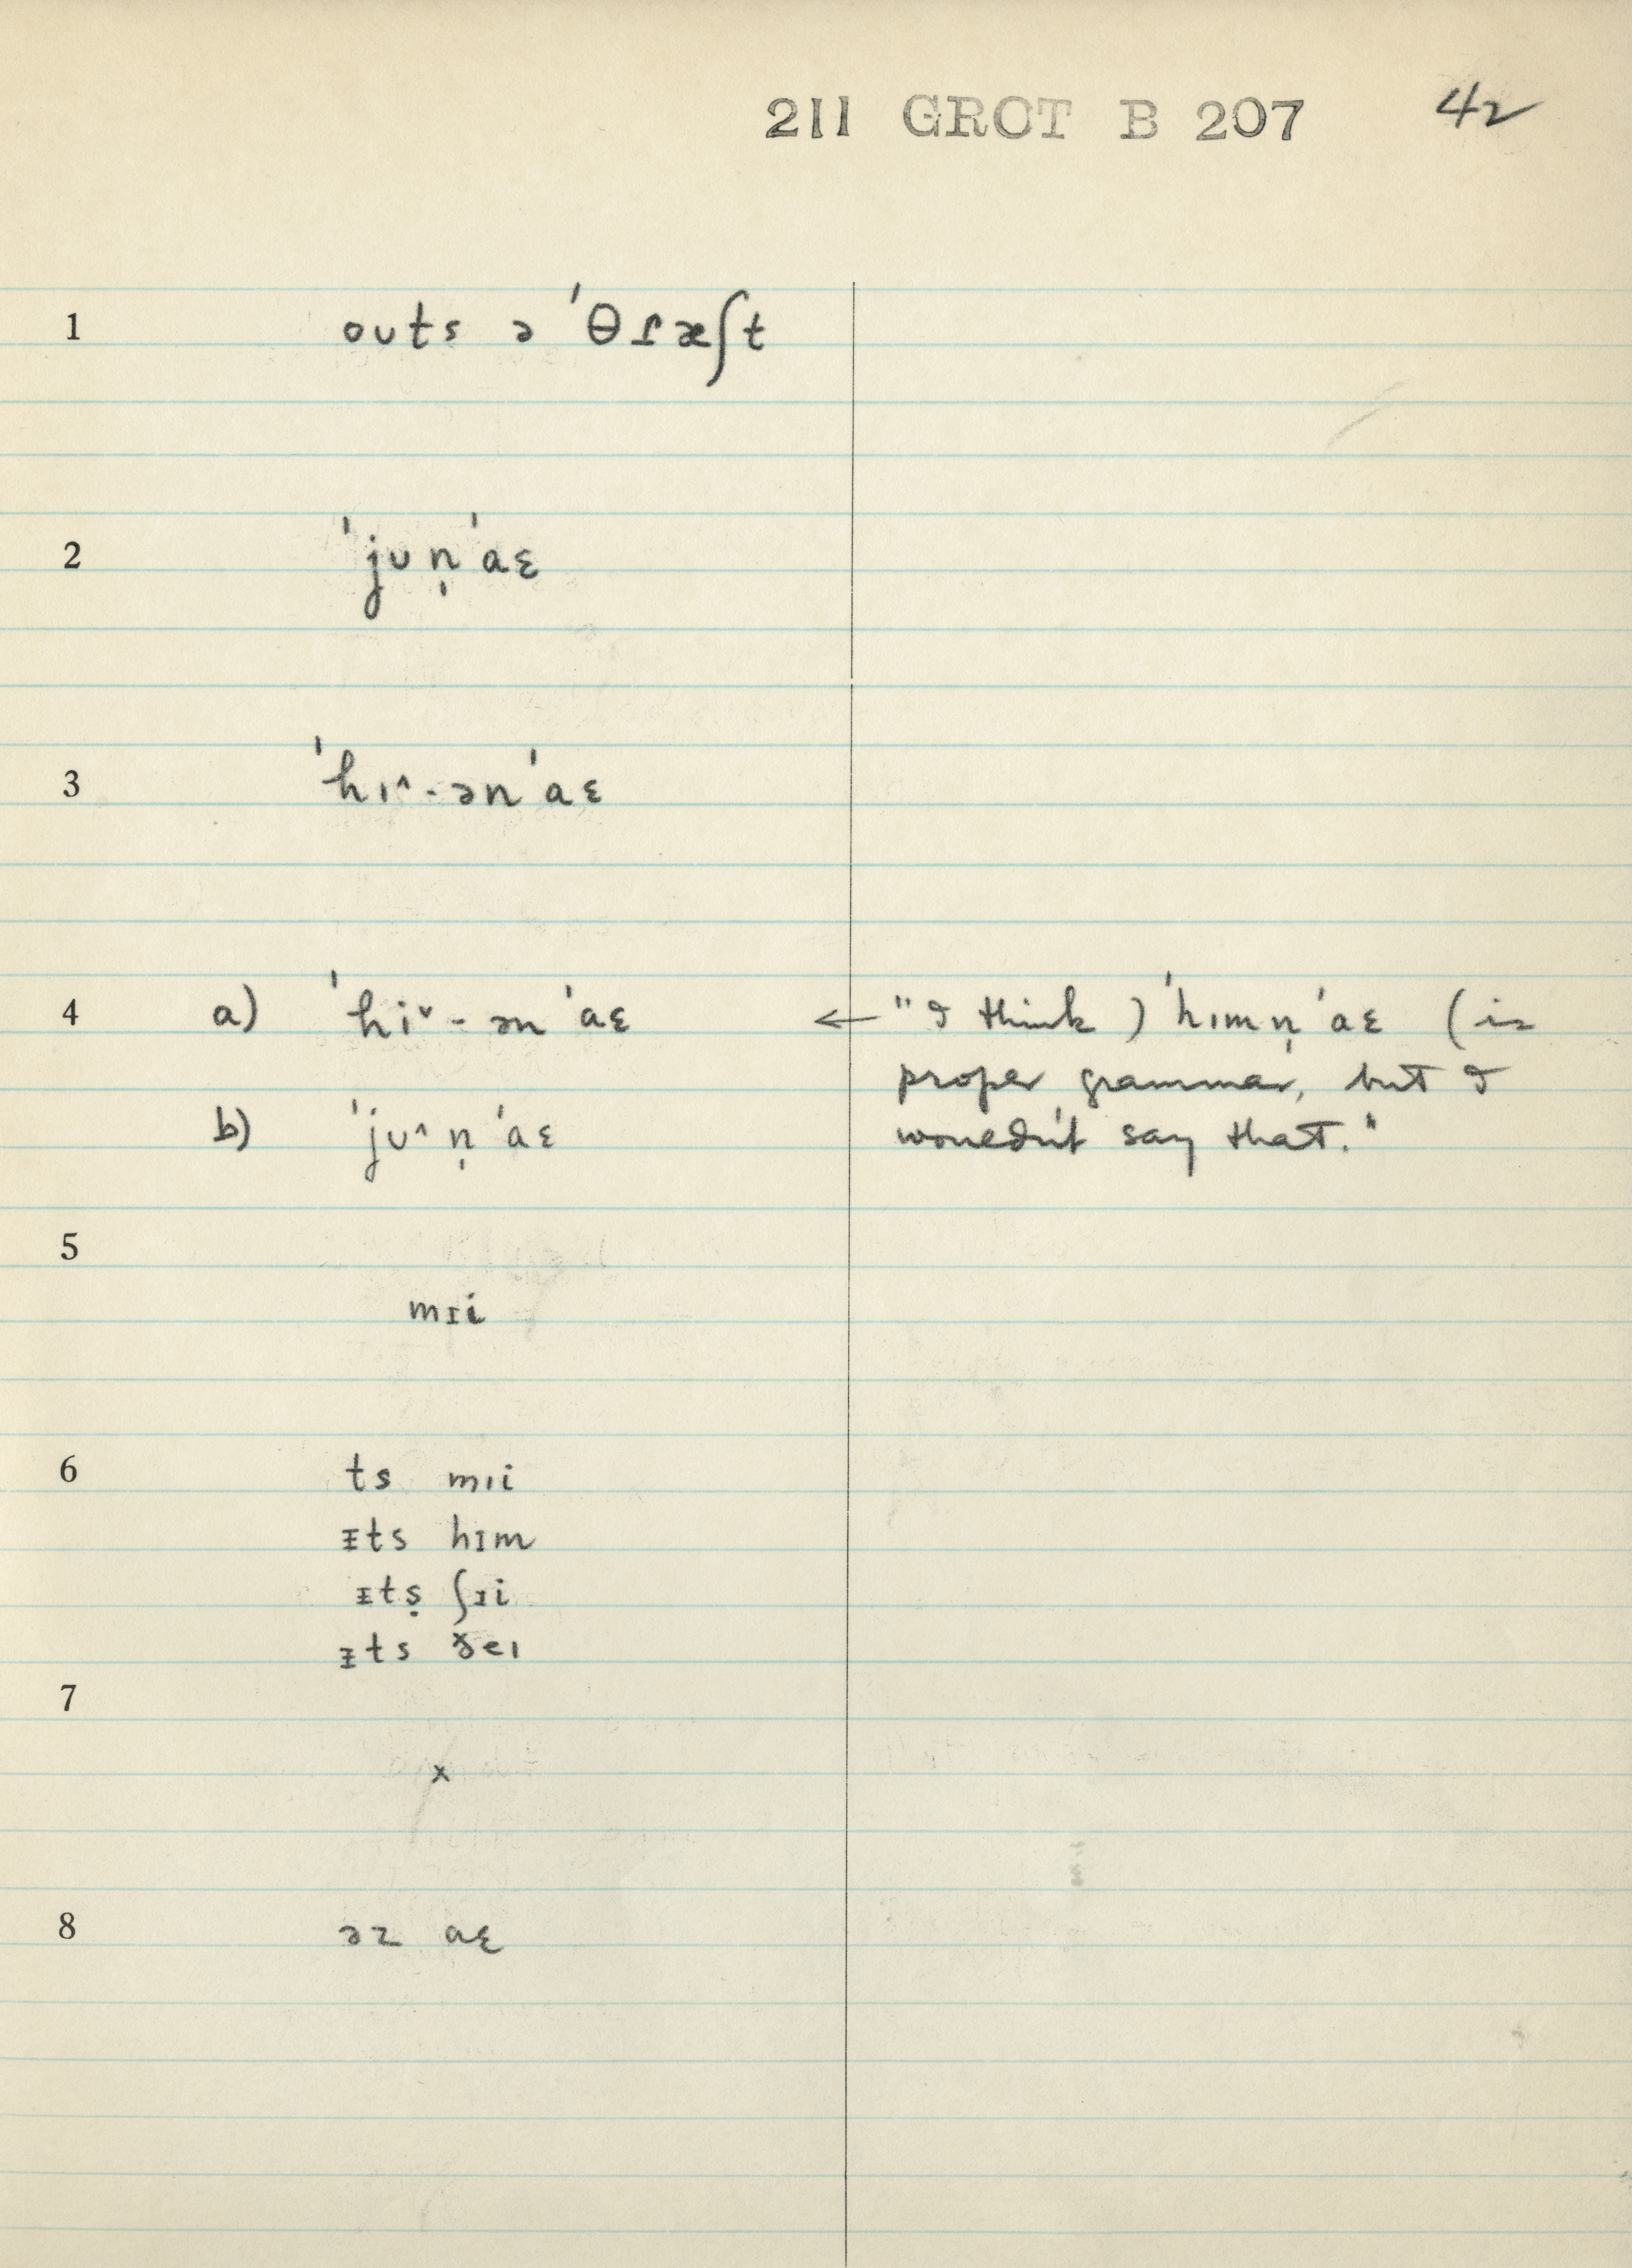 211 GROT B 207 42
1 oʊts ə ˈθɾæʃt
2 ˈjʊn̩ˈaɛ
3 ˈhɪ^-ənˈaɛ
4 a) ˈhi˅-ənˈaɛ ← "I think) ˈhɪmn̩ˈaɛ (is
proper grammar, but I
b) ˈjʊ^n̩ˈaɛ wouldn't say that."
5
mɪi
6 ts mɪi
ɪ̵ts hɪm
ɪ̵tṣ ʃɪi
ɪ̵ts ðeɪ
7
x
8 əz aɛ